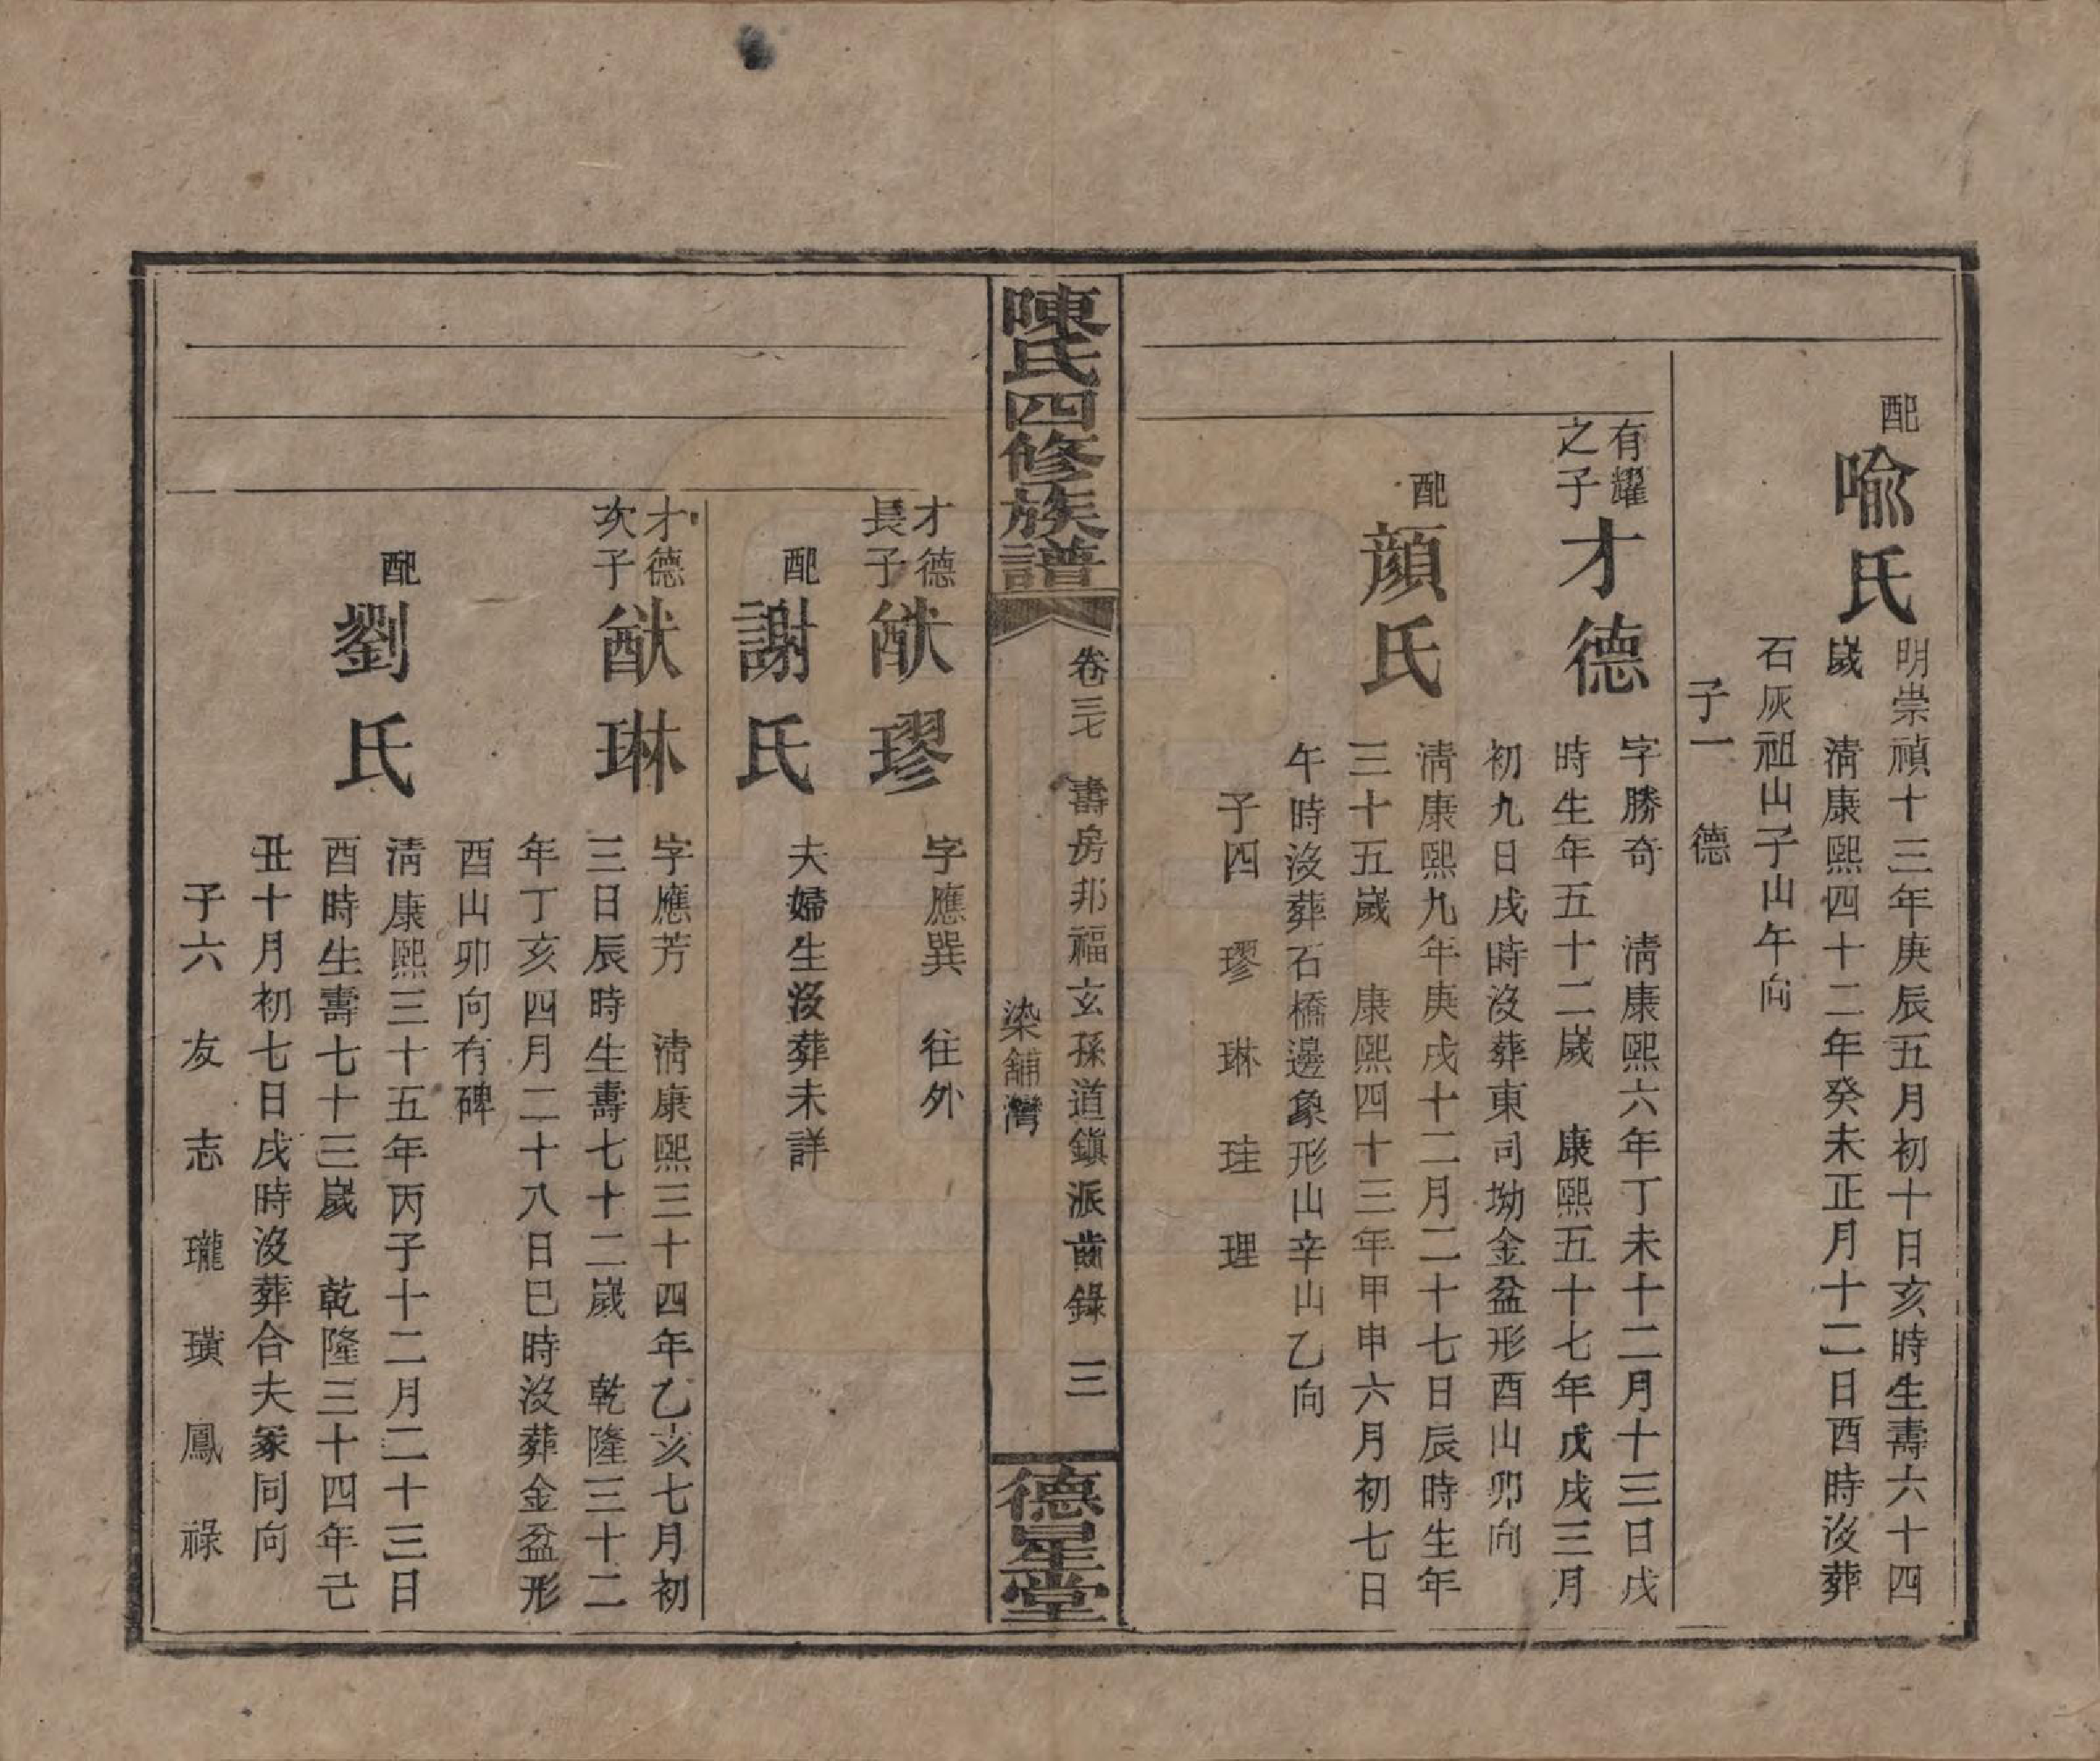 配喩氏
明崇禎十三年庚辰五月初十日亥時生壽六十四
歲　淸康熙四十二年癸未正月十二日酉時沒葬
石灰祖山子山午向
子一　德
有耀
之子
才德
字勝奇　淸康熙六年丁未十二月十三日戌
時生年五十二歲　康熙五十七年戊戌三月
初九日戌時沒葬東司坳金盆形酉山卯向
配顔氏
淸康熙九年庚戌十二月二十七日辰時生年
三十五歲　康熙四十三年甲申六月初七日
午時沒葬石橋邊象形山辛山乙向
子四　璆　琳　珪　理
陳氏四修族譜
卷三七　壽房邦福玄孫道鎭派齒錄　三
染舖灣
德星堂
才德
長子
猷璆
字應巽　往外
配謝氏
夫婦生沒葬未詳
才德
次子
猷琳
字應芳　淸康熙三十四年乙亥七月初
三日辰時生壽七十二歲　乾隆三十二
年丁亥四月二十八日巳時沒葬金盆形
酉山卯向有碑
配劉氏
淸康熙三十五年丙子十二月二十三日
酉時生壽七十三歲　乾隆三十四年己
丑十月初七日戌時沒葬合夫冢同向
子六　友　志　瓏　璜　鳳　祿